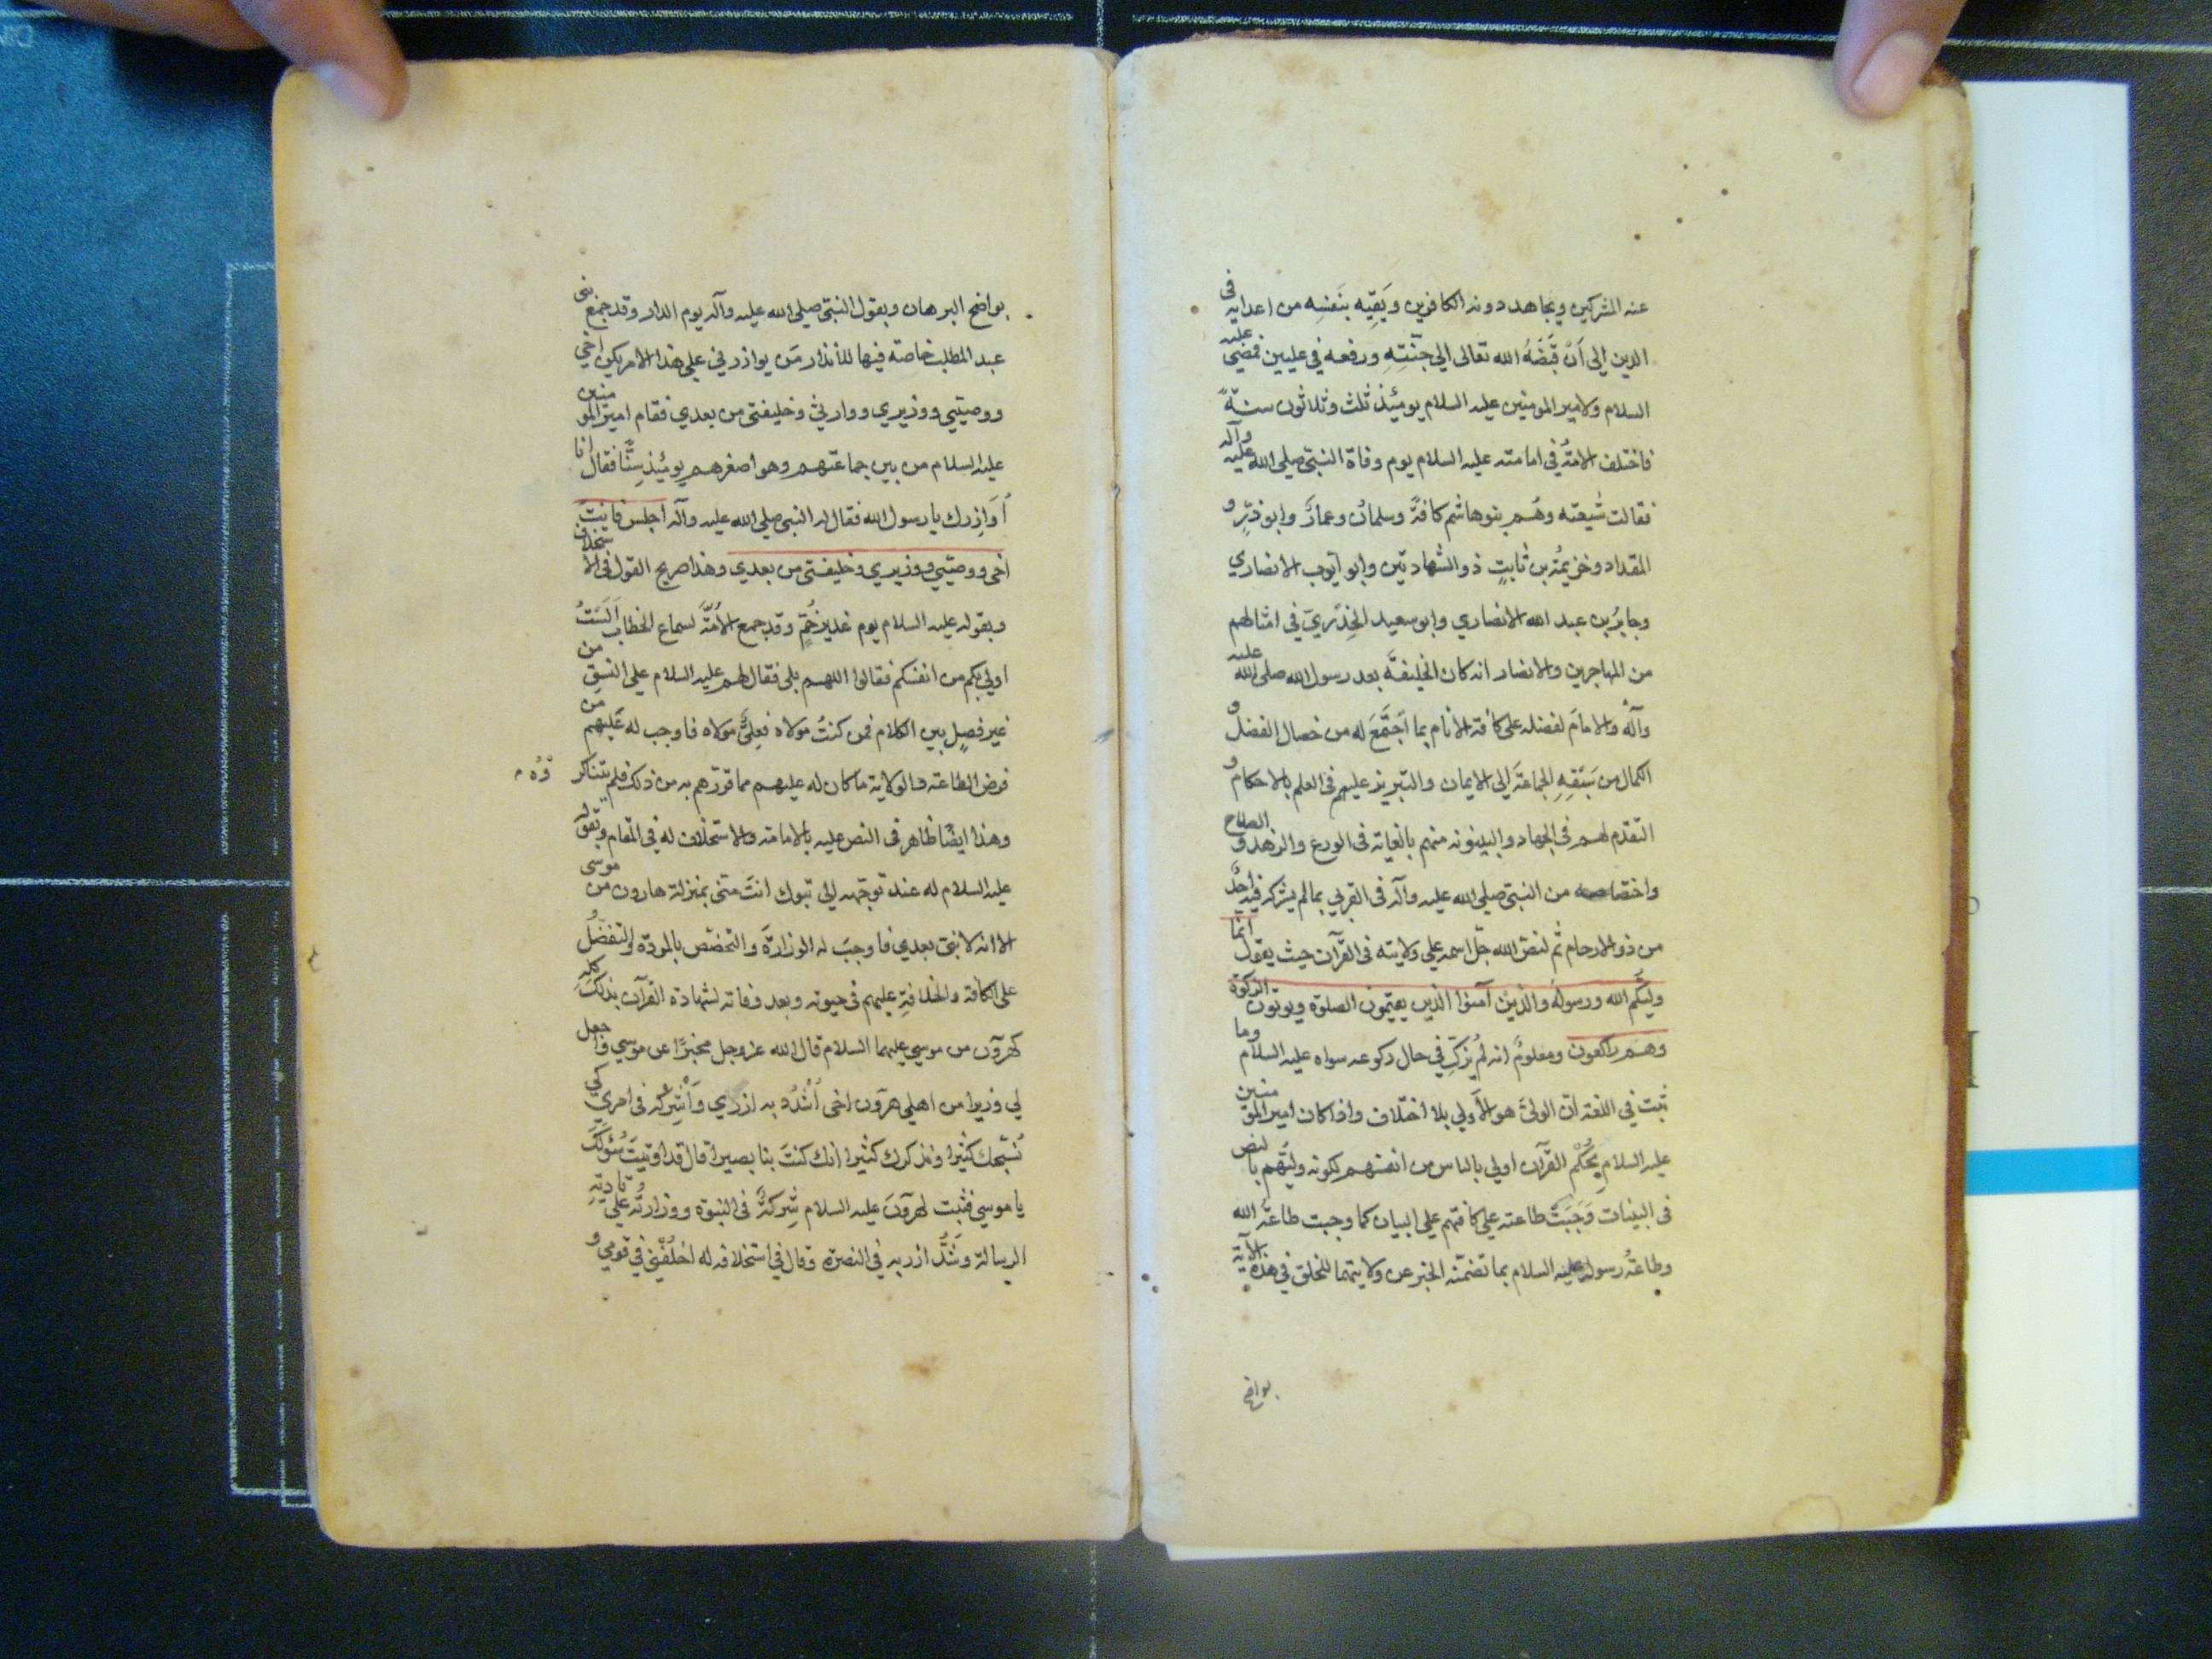 عنه المشركين ويجاهد دونه الكافرين ويَقِيه بنَفسِه من اعدايه فى
الدين إلى اَنْ قَبَضَهُ الله تعالى الى جنّتِهِ ورفعه في عليين فمضى عليه
السلام ولامير المومنين عليه السلام يومئذ ثلث وثلاثون سنةً
فاختلف الامةُ في امامته عليه السلام يوم وفاة النبىّ صلى الله عليه وآله
فقالت شيعته وهُم بنو هاشم كافةً وسلمانُ وعمارٌ وابو ذرٍّ و
المقداد وخزيمةُ بن ثابتٍ ذو الشهادتين وابو ايّوب الانصاري
وجابرُ بن عبد الله الانصاري وابو سعيد الخِدْري في امثالهم
من المهاجرين والانصار انه كان الخليفةَ بعد رسول الله صلى الله عليه
وآله والامامَ لفضله على كافة الانام بما اجتَمَعَ له من خصال الفضل و
الكمال من سَبْقِهِ الجماعةَ الى الايمان والتبريز عليهم فى العلم بالاحكام و
التقدّم لهم فى الجهاد والبينونه منهم بالغاية فى الورع والزهد والصلاح
واختصاصه من النبىّ صلى الله عليه وآله فى القربي بما لم يشركه فيه احدٌ
من ذو الارحام ثم لنصّ الله جلّ اسمه على ولايته فى القرآن حيث يقول انما
وليّكم الله ورسوله والذين آمنوا الذين يقيمون الصلوة ويوتون الزكوة
وهم راكعون ومعلومٌ انه لم يُزَكِّ في حال ركوعه سواه عليه السلام وما
ثبت في اللغة انّ الولىّ هو الأولي بلا اختلاف واذا كان امير المومنين
عليه السلام بحُكْم القرآن اولي بالناس من انفسهم لكونه وليَّهم بالنص
فى البينات وَجَبَتْ طاعته على كافتهم علي البيان كما وجبت طاعةُ الله
وطاعةُ رسوله عليه السلام بما تضمّنه الخبر عن ولايتهما للخلق في هذه الآية
بواضح
بواضح البرهان وبقول النبىّ صلى الله عليه وآله يوم الدار وقد جمع بنى
عبد المطلب خاصة فيها للانذار مَن يوازرني على هذا الامر يكن اخي
ووصيّي ووزيري ووارثي وخليفتى من بعدي فقام امير المومنين
عليه السلام من بين جماعتهم وهو اصغرهم يومئذ سنًّا فقال انا
أوَازِرك يا رسول الله فقال له النبي صلى الله عليه وآله اجلس فانتَ
اخى ووصيّي ووزيري وخليفتى من بعدي وهذا صريح القول فى الاستخلاف
وبقوله عليه السلام يوم غدير خُمٍّ وقد جمع الأمّةَ لسماع الخطاب اَلَستُ
اولى بكم من انفسكم فقالوا اللهم بلى فقال لهم عليه السلام على النسق من
غير فصلٍ بين الكلام فمن كنتُ مولاه فعلىٌّ مولاه فاوجب له عليهم من
فرض الطاعة والولاية ما كان له عليهم مما قررهم به من ذلك فلم يتناكروه
وهذا ايضًا ظاهر فى النص عليه بالامامة والاستخلاف له في المقام وبقوله
عليه السلام له عند توجّهه الى تبوك انتَ منّى بمنزلة هارون من موسى
الا انه لا نبىّ بعدي فاوجبَ له الوزارةَ والتخصّص بالمودّة والتفضّلُ
على الكافة والخلافةِ عليهم فى حيوته وبعد وفاته لشهادة القرآن بذلك كله
لهرٰون من موسى عليهما السلام قال الله عزوجل مخبرًا عن موسى واجعل
لي وزيرا من اهلي هرٰون اخى اُشْدُد به ازري وأَشرِكْه فى امري كي
نُسَبِّحك كثيرا ونذكرك كثيرا انك كنتَ بنا بصيرا قال قد اوتيتَ سُؤلكَ
يا موسى فثبت لهرٰونَ عليه السلام شِركةٌ فى النبوّة ووزارتُه على تاديةِ
الرسالة وشَدُّ ازره به في النصرة وقال في استخلافه له اخلُفْني في قومي و